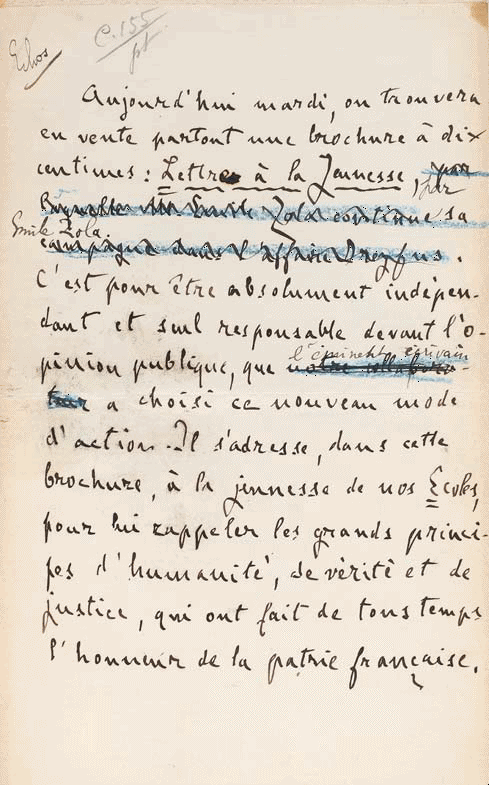 Echos
C.155
pt
Aujourd'hui mardi, on trouvera
en vente partout une brochure à dix
centimes : Lettre à la Jeunesse, par
par
laquelle M. Emile Zola continue sa
Emile Zola.
campagne dans l'affaire Dreyfus.
C'est pour être absolument indépen-
dant et seul responsable devant l'o-
l'éminent écrivain
pinion publique, que notre collabora-
teur a choisi ce nouveau mode
d'action. Il s'adresse, dans cette
brochure, à la jeunesse de nos Ecoles,
pour lui rappeler les grands princi-
pes d'humanité, de vérité et de
justice, qui ont fait de tous temps
l'honneur de la patrie française.